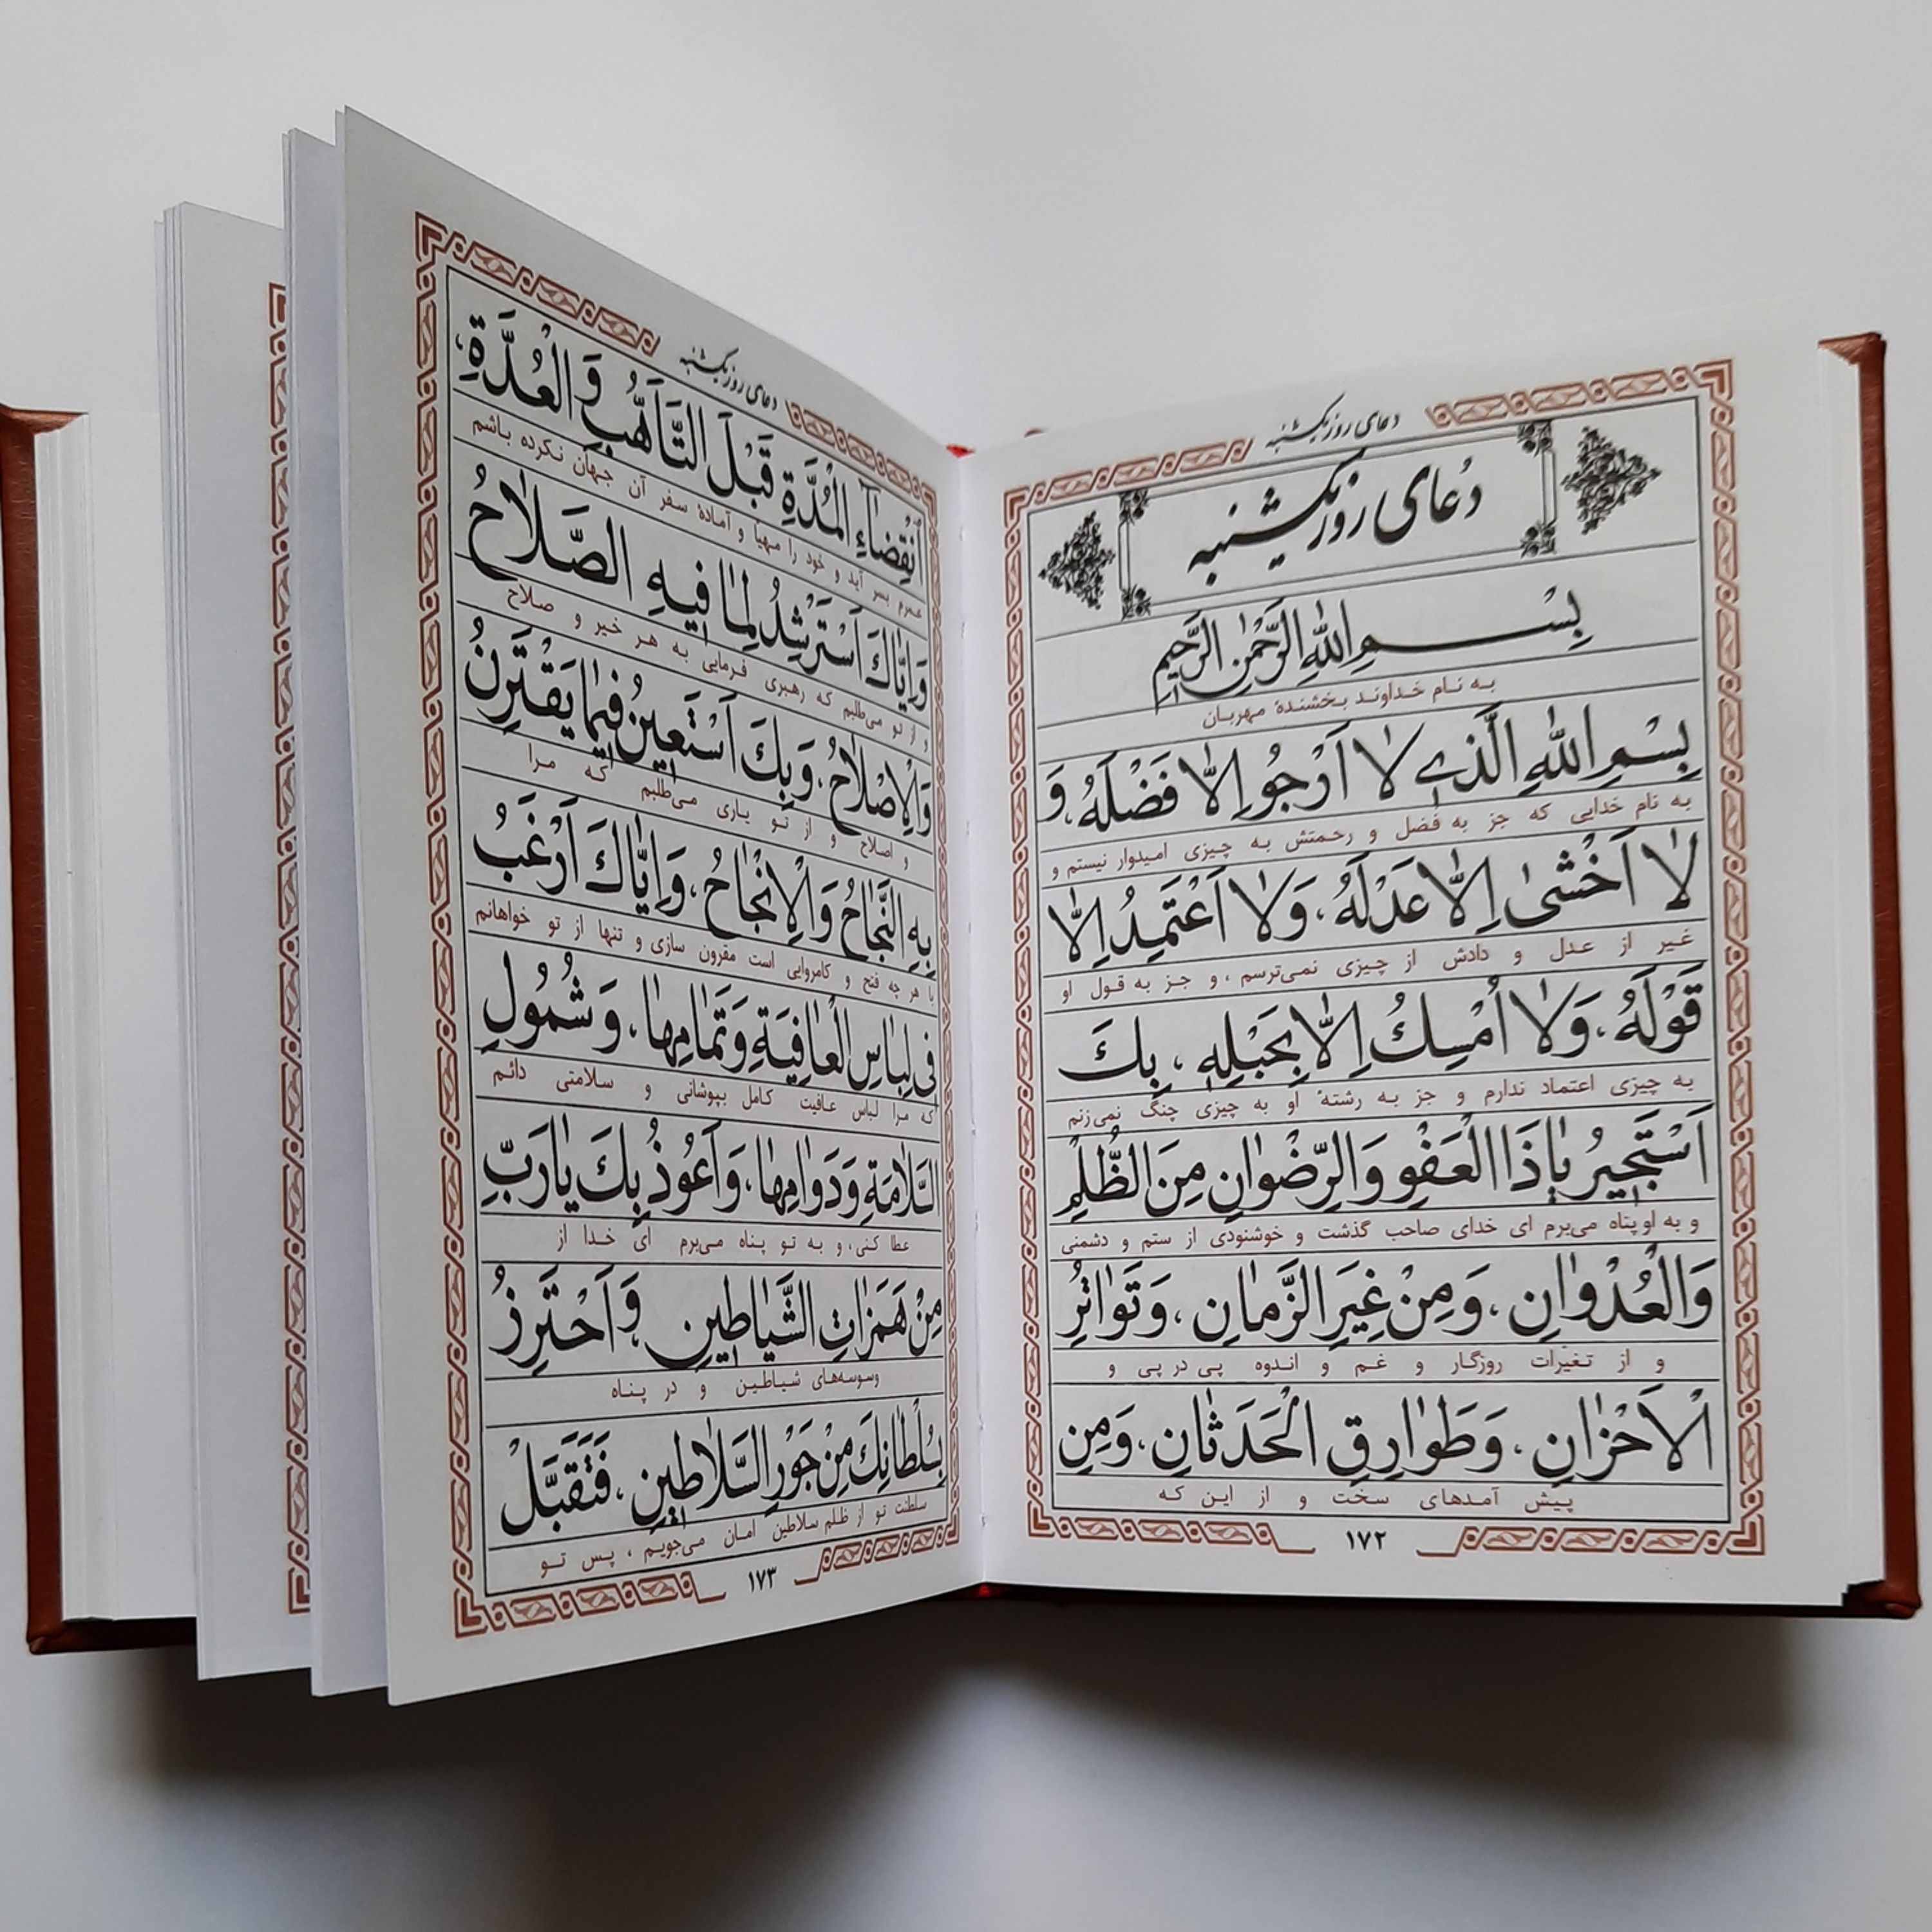 دعای روز یکشنبه
دُعای روز یکشنبه
بِسْمِ اللّٰهِ الرَّحْمٰنِ الرَّحیمِ
به نام خداوند بخشندهٔ مهربان
بِسْمِ اللّٰهِ الَّذی لٰا اَرْجُو اِلّٰا فَضْلَهُ، وَ
به نام خدایی که جز به فضل و رحمتش به چیزی امیدوار نیستم و
لٰا اَخْشىٰ اِلّٰا عَدْلَهُ، وَلٰا اَعْتَمِدُ اِلّٰا
غیر از عدل و دادش از چیزی نمی‌ترسم ، و جز به قول او
قَوْلَهُ، وَلٰا اُمْسِكُ اِلّٰا بِحَبْلِهِ ، بِكَ
به چیزی اعتماد ندارم و جز به رشتهٔ او به چیزی چنگ نمی‌زنم
اَسْتَجیرُ یٰا ذَا الْعَفْوِ وَالرِّضْوٰانِ مِنَ الظُّلْمِ
و به او پناه می‌برم ای خدای صاحب گذشت و خوشنودی از ستم و دشمنی
وَالْعُدْوٰانِ ، وَمِنْ غِیَرِ الزَّمٰانِ ، وَتَوٰاتُرِ
و از تغیرات روزگار و غم و اندوه پی در پی و
الْاَحْزٰانِ ، وَطَوٰارِقِ الْحَدَثٰانِ ، وَمِنِ
پیش آمدهای سخت و از این که
۱۷۲
دعای روز یکشنبه
اِنْقِضٰاءِ الْمُدَّةِ قَبْلَ التَّاَهُّبِ وَالْعُدَّةِ،
عمرم بسر آید و خود را مهیا و آمادهٔ سفر آن جهان نکرده باشم
وَاِیّٰاكَ اَسْتَرْشِدُ لِمٰا فیهِ الصَّلٰاحُ
و از تو می‌طلبم که رهبری فرمایی به هر خیر و صلاح
وَالْاِصْلٰاحُ، وَبِكَ اَسْتَعینُ فیمٰا یَقْتَرِنُ
و اصلاح و از تو یاری می‌طلبم که مرا
بِهِ النَّجٰاحُ وَالْاِنْجٰاحُ، وَاِیّٰاكَ اَرْغَبُ
با هر چه فتح و کامروایی است مقرون سازی و تنها از تو خواهانم
فی لِبٰاسِ الْعٰافِیَةِ وَتَمٰامِهٰا، وَشُمُولِ
که مرا لباس عافیت کامل بپوشانی و سلامتی دائم
السَّلٰامَةِ وَدَوٰامِهٰا، وَاَعُوذُ بِكَ یٰا رَبِّ
عطا کنی، و به تو پناه می‌برم ای خدا از
مِنْ هَمَزٰاتِ الشَّیٰاطینِ ، وَاَحْتَرِزُ
وسوسه‌های شیاطین و در پناه
بِسُلْطٰانِكَ مِنْ جَوْرِ السَّلٰاطینِ ، فَتَقَبَّلْ
سلطنت تو از ظلم سلاطین امان می‌جویم ، پس تو
۱۷۳